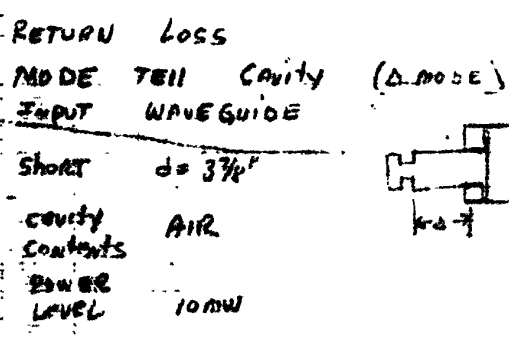 RETURN LOSS
MODE TE111 CAVITY (Δ MODE)
INPUT WAVEGUIDE
SHORT d = 3 7/8"
CAVITY CONTENTS AIR
POWER LEVEL 10 MW
Δ